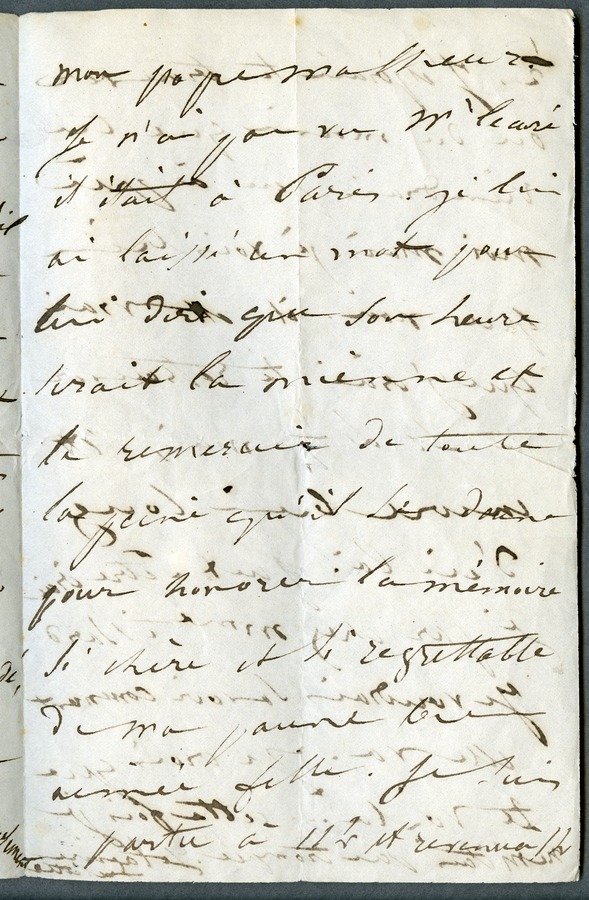 Je n'ai pas vu Mr le curé
il était à Paris. je lui
ai laissé un mot pour
lui dire que son heure
serait la mienne et
le remercier de toute
la peine qu'il se donne
pour honorer la mémoire
si chère et si regrettable
de ma pauvre bien
aimée fille. Je suis
partie à 11h et revenue